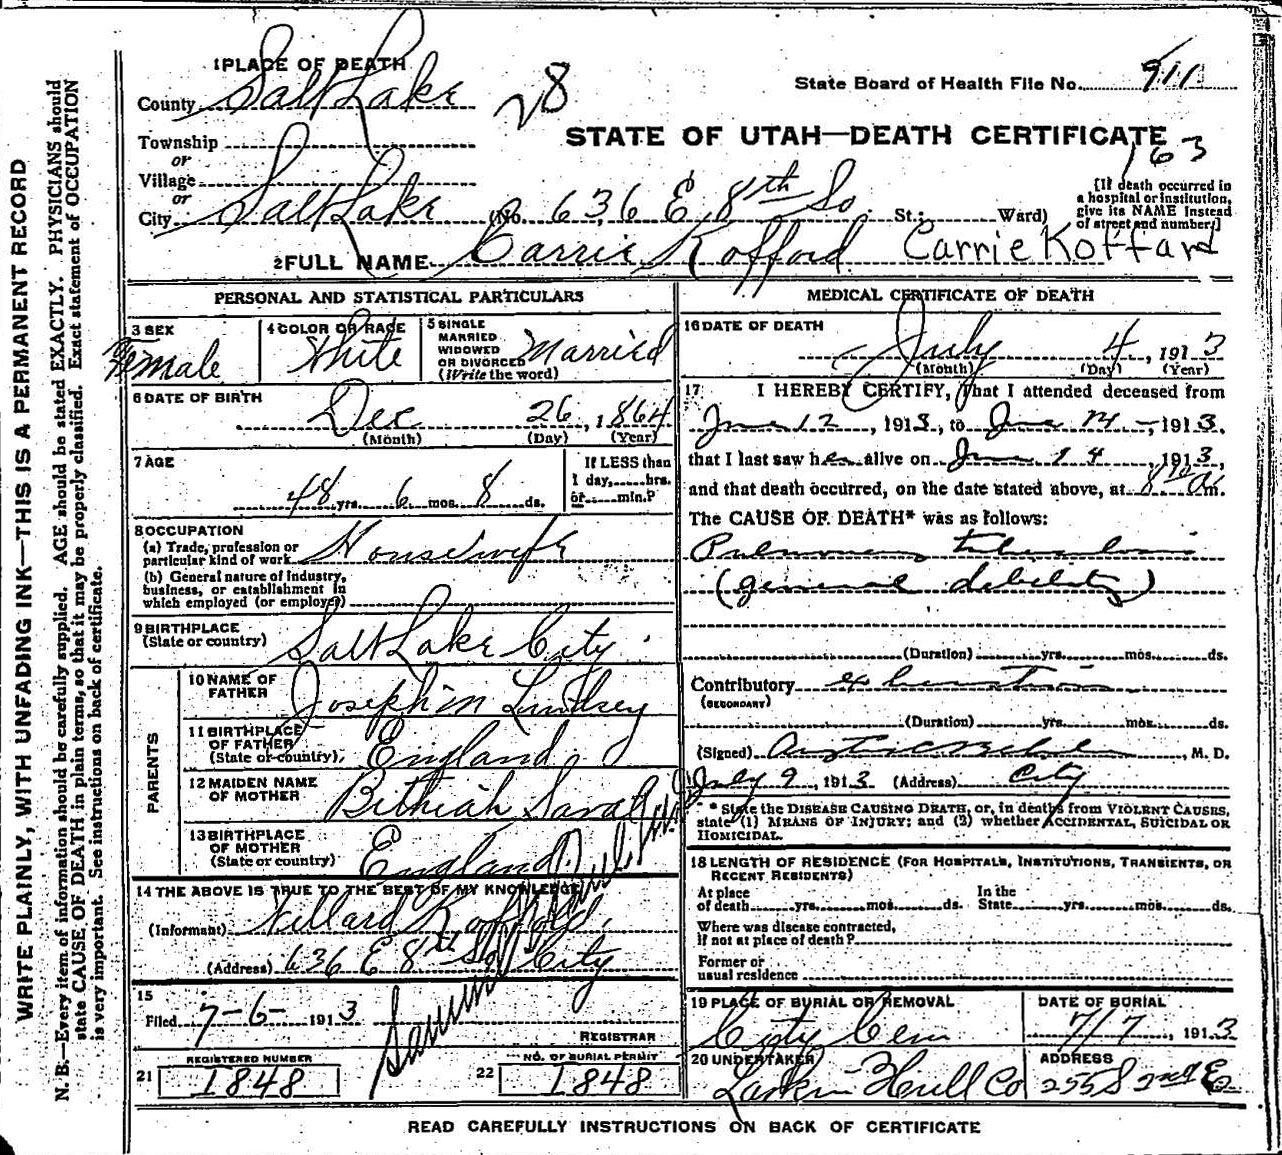 1 PLACE OF DEATH
County Salt Lake
28
State Board of Health File No. 911
STATE OF UTAH—DEATH CERTIFICATE
163
Township
or
Village
or
City Salt Lake (No. 636 E 8th So St.; Ward)
[If death occurred in a hospital or institution, give its NAME instead of street and number.]
2 FULL NAME Carrie Kofford Carrie Koffard
PERSONAL AND STATISTICAL PARTICULARS
3 SEX Female
4 COLOR OR RACE White
5 SINGLE MARRIED WIDOWED OR DIVORCED (Write the word) Married
6 DATE OF BIRTH
Dec 26, 1864
(Month) (Day) (Year)
7 AGE
48 yrs. 6 mos. 8 ds.
If LESS than 1 day, hrs. or min.?
8 OCCUPATION
(a) Trade, profession or particular kind of work Housewife
(b) General nature of industry, business, or establishment in which employed (or employer)
9 BIRTHPLACE
(State or country) Salt Lake City
PARENTS
10 NAME OF FATHER Joseph M Lindsey
11 BIRTHPLACE OF FATHER (State or country) England
12 MAIDEN NAME OF MOTHER Bithiah
13 BIRTHPLACE OF MOTHER (State or country) England
14 THE ABOVE IS TRUE TO THE BEST OF MY KNOWLEDGE
(Informant) Willard Kofford
(Address) 636 E 8th So City
15
Filed 7-6- 1913
REGISTRAR
REGISTERED NUMBER
21 1848
NO. OF BURIAL PERMIT
22 1848
MEDICAL CERTIFICATE OF DEATH
16 DATE OF DEATH
July 4, 1913
(Month) (Day) (Year)
17 I HEREBY CERTIFY, That I attended deceased from
June 12, 1913, to June 14, 1913,
that I last saw her alive on June 14, 1913,
and that death occurred, on the date stated above, at m.
The CAUSE OF DEATH* was as follows:
Pulmonary tuberculosis
(general debility)
(Duration) yrs. mos. ds.
Contributory exhaustion
(SECONDARY)
(Duration) yrs. mos. ds.
(Signed) M. D.
July 9, 1913 (Address) City
* State the DISEASE CAUSING DEATH, or, in deaths from VIOLENT CAUSES,
state (1) MEANS OF INJURY; and (2) whether ACCIDENTAL, SUICIDAL OR
HOMICIDAL.
18 LENGTH OF RESIDENCE (FOR HOSPITALS, INSTITUTIONS, TRANSIENTS, OR RECENT RESIDENTS)
At place of death yrs. mos. ds. In the State yrs. mos. ds.
Where was disease contracted, if not at place of death?
Former or usual residence
19 PLACE OF BURIAL OR REMOVAL
City Cem
DATE OF BURIAL
7/7, 1913
20 UNDERTAKER
Larkin Hull Co
ADDRESS
255 S 2nd E
READ CAREFULLY INSTRUCTIONS ON BACK OF CERTIFICATE
WRITE PLAINLY, WITH UNFADING INK—THIS IS A PERMANENT RECORD
N. B.—Every item of information should be carefully supplied. AGE should be stated EXACTLY. PHYSICIANS should
state CAUSE OF DEATH in plain terms, so that it may be properly classified. Exact statement of OCCUPATION
is very important. See instructions on back of certificate.